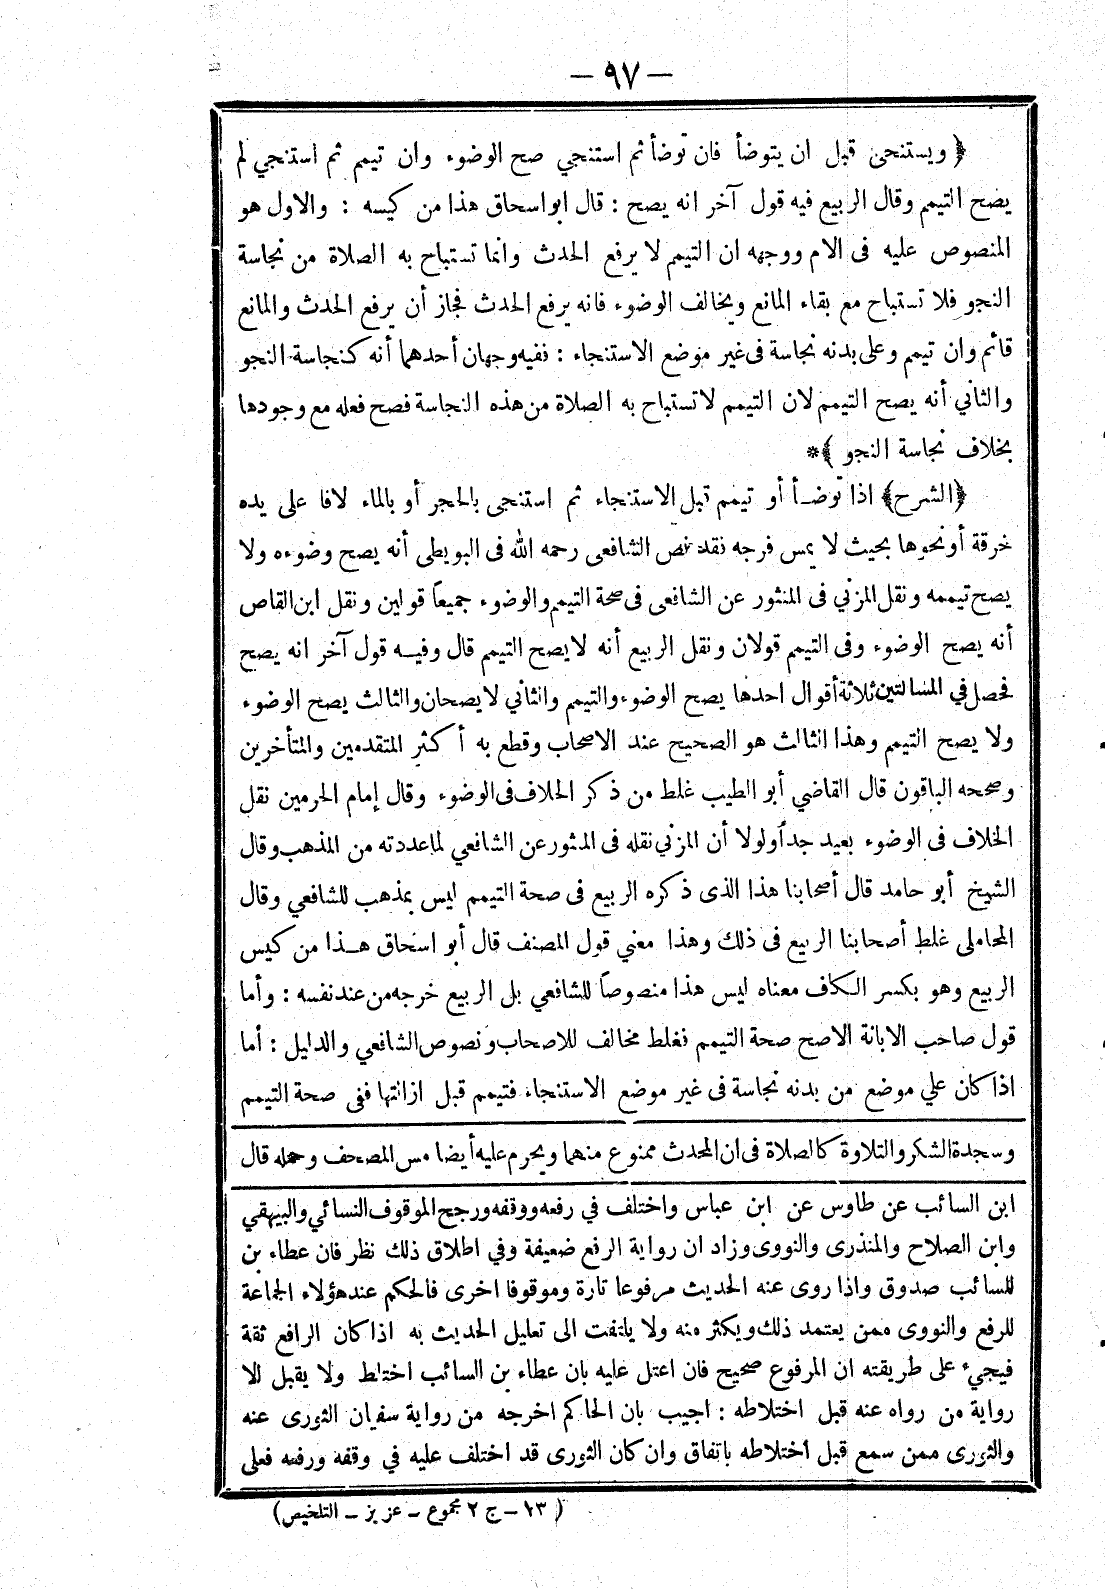 — ٩٧ —
﴿ ويستنجى قبل ان يتوضأ فان توضأ ثم استنجي صح الوضوء وان تيمم ثم استنجي لم
يصح التيمم وقال الربيع فيه قول آخر انه يصح : قال ابو اسحاق هذا من كيسه : والاول هو
المنصوص عليه فى الام ووجهه ان التيمم لا يرفع الحدث وانما تستباح به الصلاة من نجاسة
النجو فلا تستباح مع بقاء المانع ويخالف الوضوء فانه يرفع الحدث فجاز أن يرفع الحدث والمانع
قائم وان تيمم وعلى بدنه نجاسة فى غير موضع الاستنجاء : ففيه وجهان أحدهما أنه كنجاسة النجو
والثاني أنه يصح التيمم لان التيمم لا تستباح به الصلاة من هذه النجاسة فصح فعله مع وجودها
بخلاف نجاسة النجو ﴾*
﴿الشرح﴾ اذا توضـأ أو تيمم قبل الاستنجاء ثم استنجى بالحجر أو بالماء لافا على يده
خرقة أو نحوها بحيث لا يمس فرجه فقد نص الشافعى رحمه الله فى البويطى أنه يصح وضوءه ولا
يصح تيممه ونقل المزني فى المنثور عن الشافعى فى صحة التيمم والوضوء جميعاً قولين ونقل ابن القاص
أنه يصح الوضوء وفى التيمم قولان ونقل الربيع أنه لا يصح التيمم قال وفيـه قول آخر انه يصح
فحصل في المسالتين ثلاثة أقوال احدها يصح الوضوء والتيمم والثاني لا يصحان والثالث يصح الوضوء
ولا يصح التيمم وهذا الثالث هو الصحيح عند الاصحاب وقطع به أكثر المتقدمين والمتأخرين
وصححه الباقون قال القاضي أبو الطيب غلط من ذكر الخلاف فى الوضوء وقال إمام الحرمين نقل
الخلاف فى الوضوء بعيد جداً ولولا أن المزني نقله فى المنثور عن الشافعي لما عددته من المذهب وقال
الشيخ أبو حامد قال أصحابنا هذا الذى ذكره الربيع فى صحة التيمم ليس بمذهب للشافعي وقال
المحاملى غلط أصحابنا الربيع فى ذلك وهذا معني قول المصنف قال أبو اسحاق هـذا من كيس
الربيع وهو بكسر الكاف معناه ليس هذا منصوصاً للشافعي بل الربيع خرجه من عند نفسه : وأما
قول صاحب الابانة الاصح صحة التيمم فغلط مخالف للاصحاب ونصوص الشافعي والدليل : أما
اذا كان علي موضع من بدنه نجاسة فى غير موضع الاستنجاء فتيمم قبل ازالتها ففى صحة التيمم
وسجدة الشكر والتلاوة كالصلاة فى ان المحدث ممنوع منهما ويحرم عليه أيضا مس المصحف وحمله قال
ابن السائب عن طاوس عن ابن عباس واختلف في رفعه ووقفه ورجح الموقوف النسائي والبيهقي
وابن الصلاح والمنذرى والنووى وزاد ان رواية الرفع ضعيفة وفي اطلاق ذلك نظر فان عطاء بن
للسائب صدوق واذا روى عنه الحديث مرفوعا تارة وموقوفا اخرى فالحكم عند هؤلاء الجماعة
للرفع والنووى ممن يعتمد ذلك ويكثر منه ولا يلتفت الى تعليل الحديث به اذا كان الرافع ثقة
فيجيء على طريقته ان المرفوع صحيح فان اعتل عليه بان عطاء بن السائب اختلط ولا يقبل الا
رواية من رواه عنه قبل اختلاطه : اجيب بان الحاكم اخرجه من رواية سفيان الثورى عنه
والثورى ممن سمع قبل اختلاطه باتفاق وان كان الثورى قد اختلف عليه في وقفه ورفعه فعلى
( ١٣ – ج ٢ مجموع – عزيز – التلخيص)